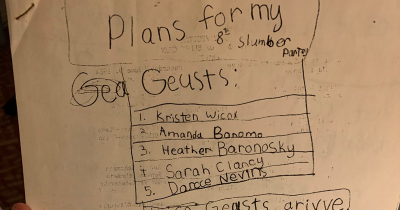 Plans for my
8E slumber
Partey
Gea Geusts:
1. Kristen Wicox
2. Amanda Banomo
3. Heather Baronosky
4 Sarah Clancy
5. Nevins
Geusts arivve